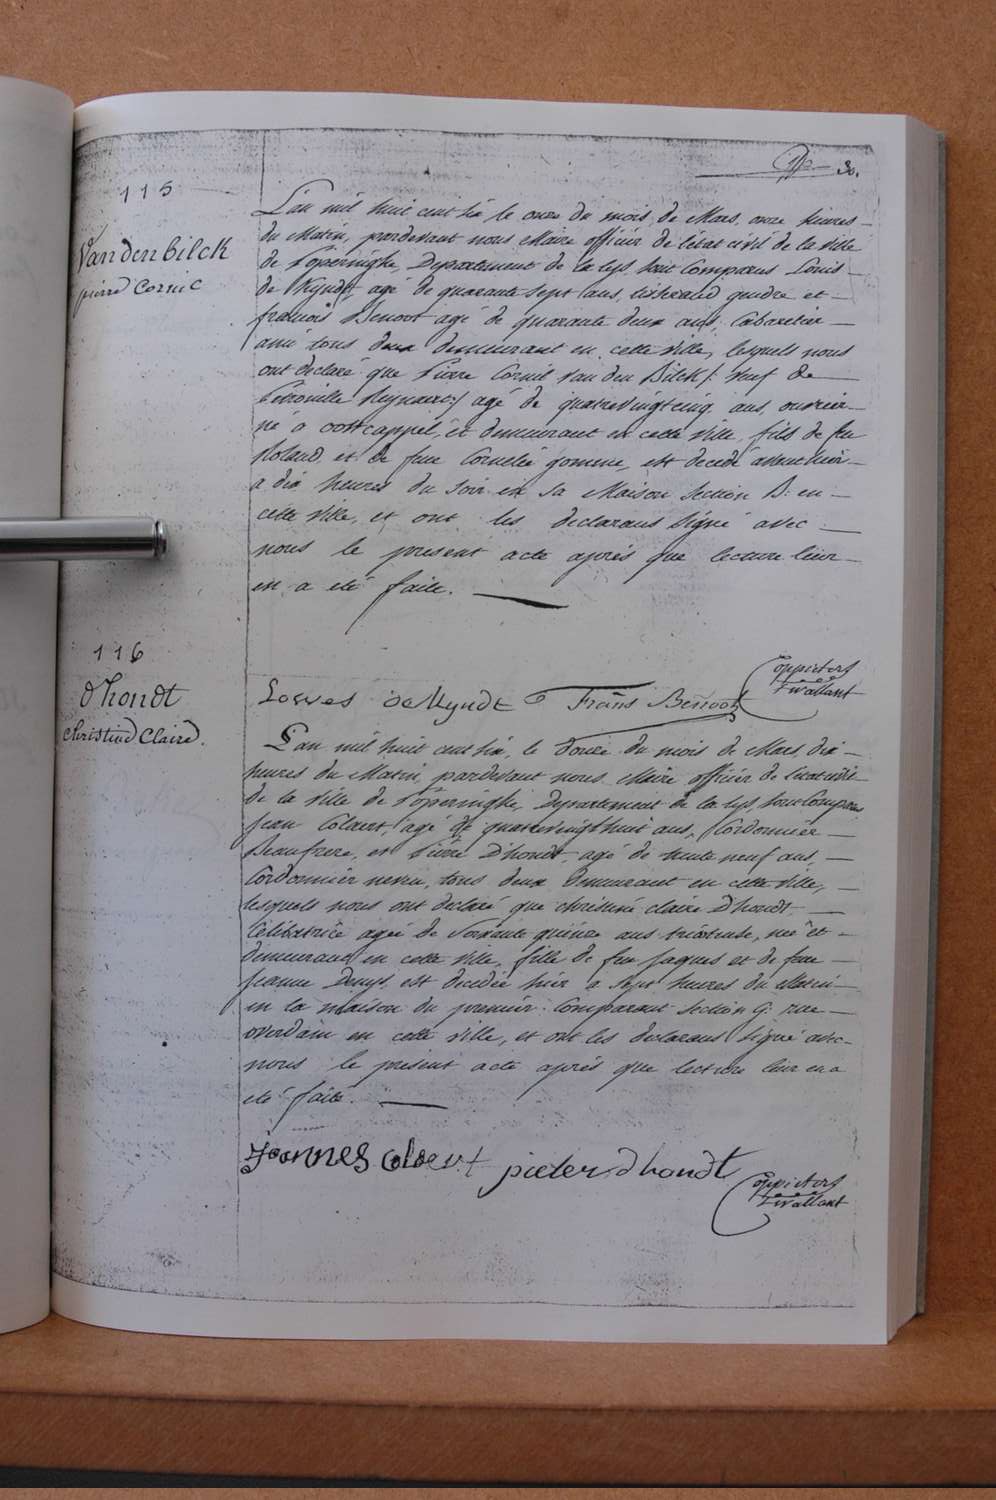 30.
115
Vandenbilck
pierre Cornil
L'an mil huit cent six le onze du mois de Mars, onze heures
du Matin, pardevant nous Maire officier de l'état civil de la ville
de Poperinghe, Departement de la Lys, sont Comparus Louis
de Mijndt, agé de quarante sept ans, tisserand gendre et
francois Benoot agé de quarante deux ans, Cabaretier
ami tous deux demeurant en cette ville, lesquels nous
ont declaré que Pierre Cornil Van den Bilck /: veuf de
Petronille Reynaert :/ agé de quatrevingtcinq ans, ouvrier
né a oostcappel, et demeurant en cette ville, fils de feu
Roland, et de feue Cornelie gomme, est decedé avant hier
a dix heures du soir en sa Maison Section B: en
cette ville, et ont les declarans signé avec
nous le present acte aprés que lecture leur
en a eté faite.
Lowes deMyndt Frans Benoot
Coppieters
t'wallant
116
d'hondt
Christine Claire.
L'an mil huit cent six, le douze du mois de Mars, dix
heures du Matin, pardevant nous Maire officier de l'etat civil
de la ville de Poperinghe, Departement de la Lys, sont Comparus
Jean Colaert, agé de quatrevingthuit ans, Cordonnier
Beaufrere, et Pierre D'hondt, agé de trente neuf ans,
Cordonnier neveu, tous deux demeurant en cette ville,
lesquels nous ont declaré que christine claire D'hondt
Celibatrice agée de Soixante quinze ans tricoteuse, née et
demeurant en cette ville, fille de feu Jaques et de feue
Jeanne Denys, est decedée hier a sept heures du Matin
en la maison du premier Comparant Section G. rue
overdam en cette ville, et ont les declarans signé avec
nous le présent acte aprés que lecture leur en a
eté faite.
Joannes colaert pieter dhondt
Coppieters
t'wallant